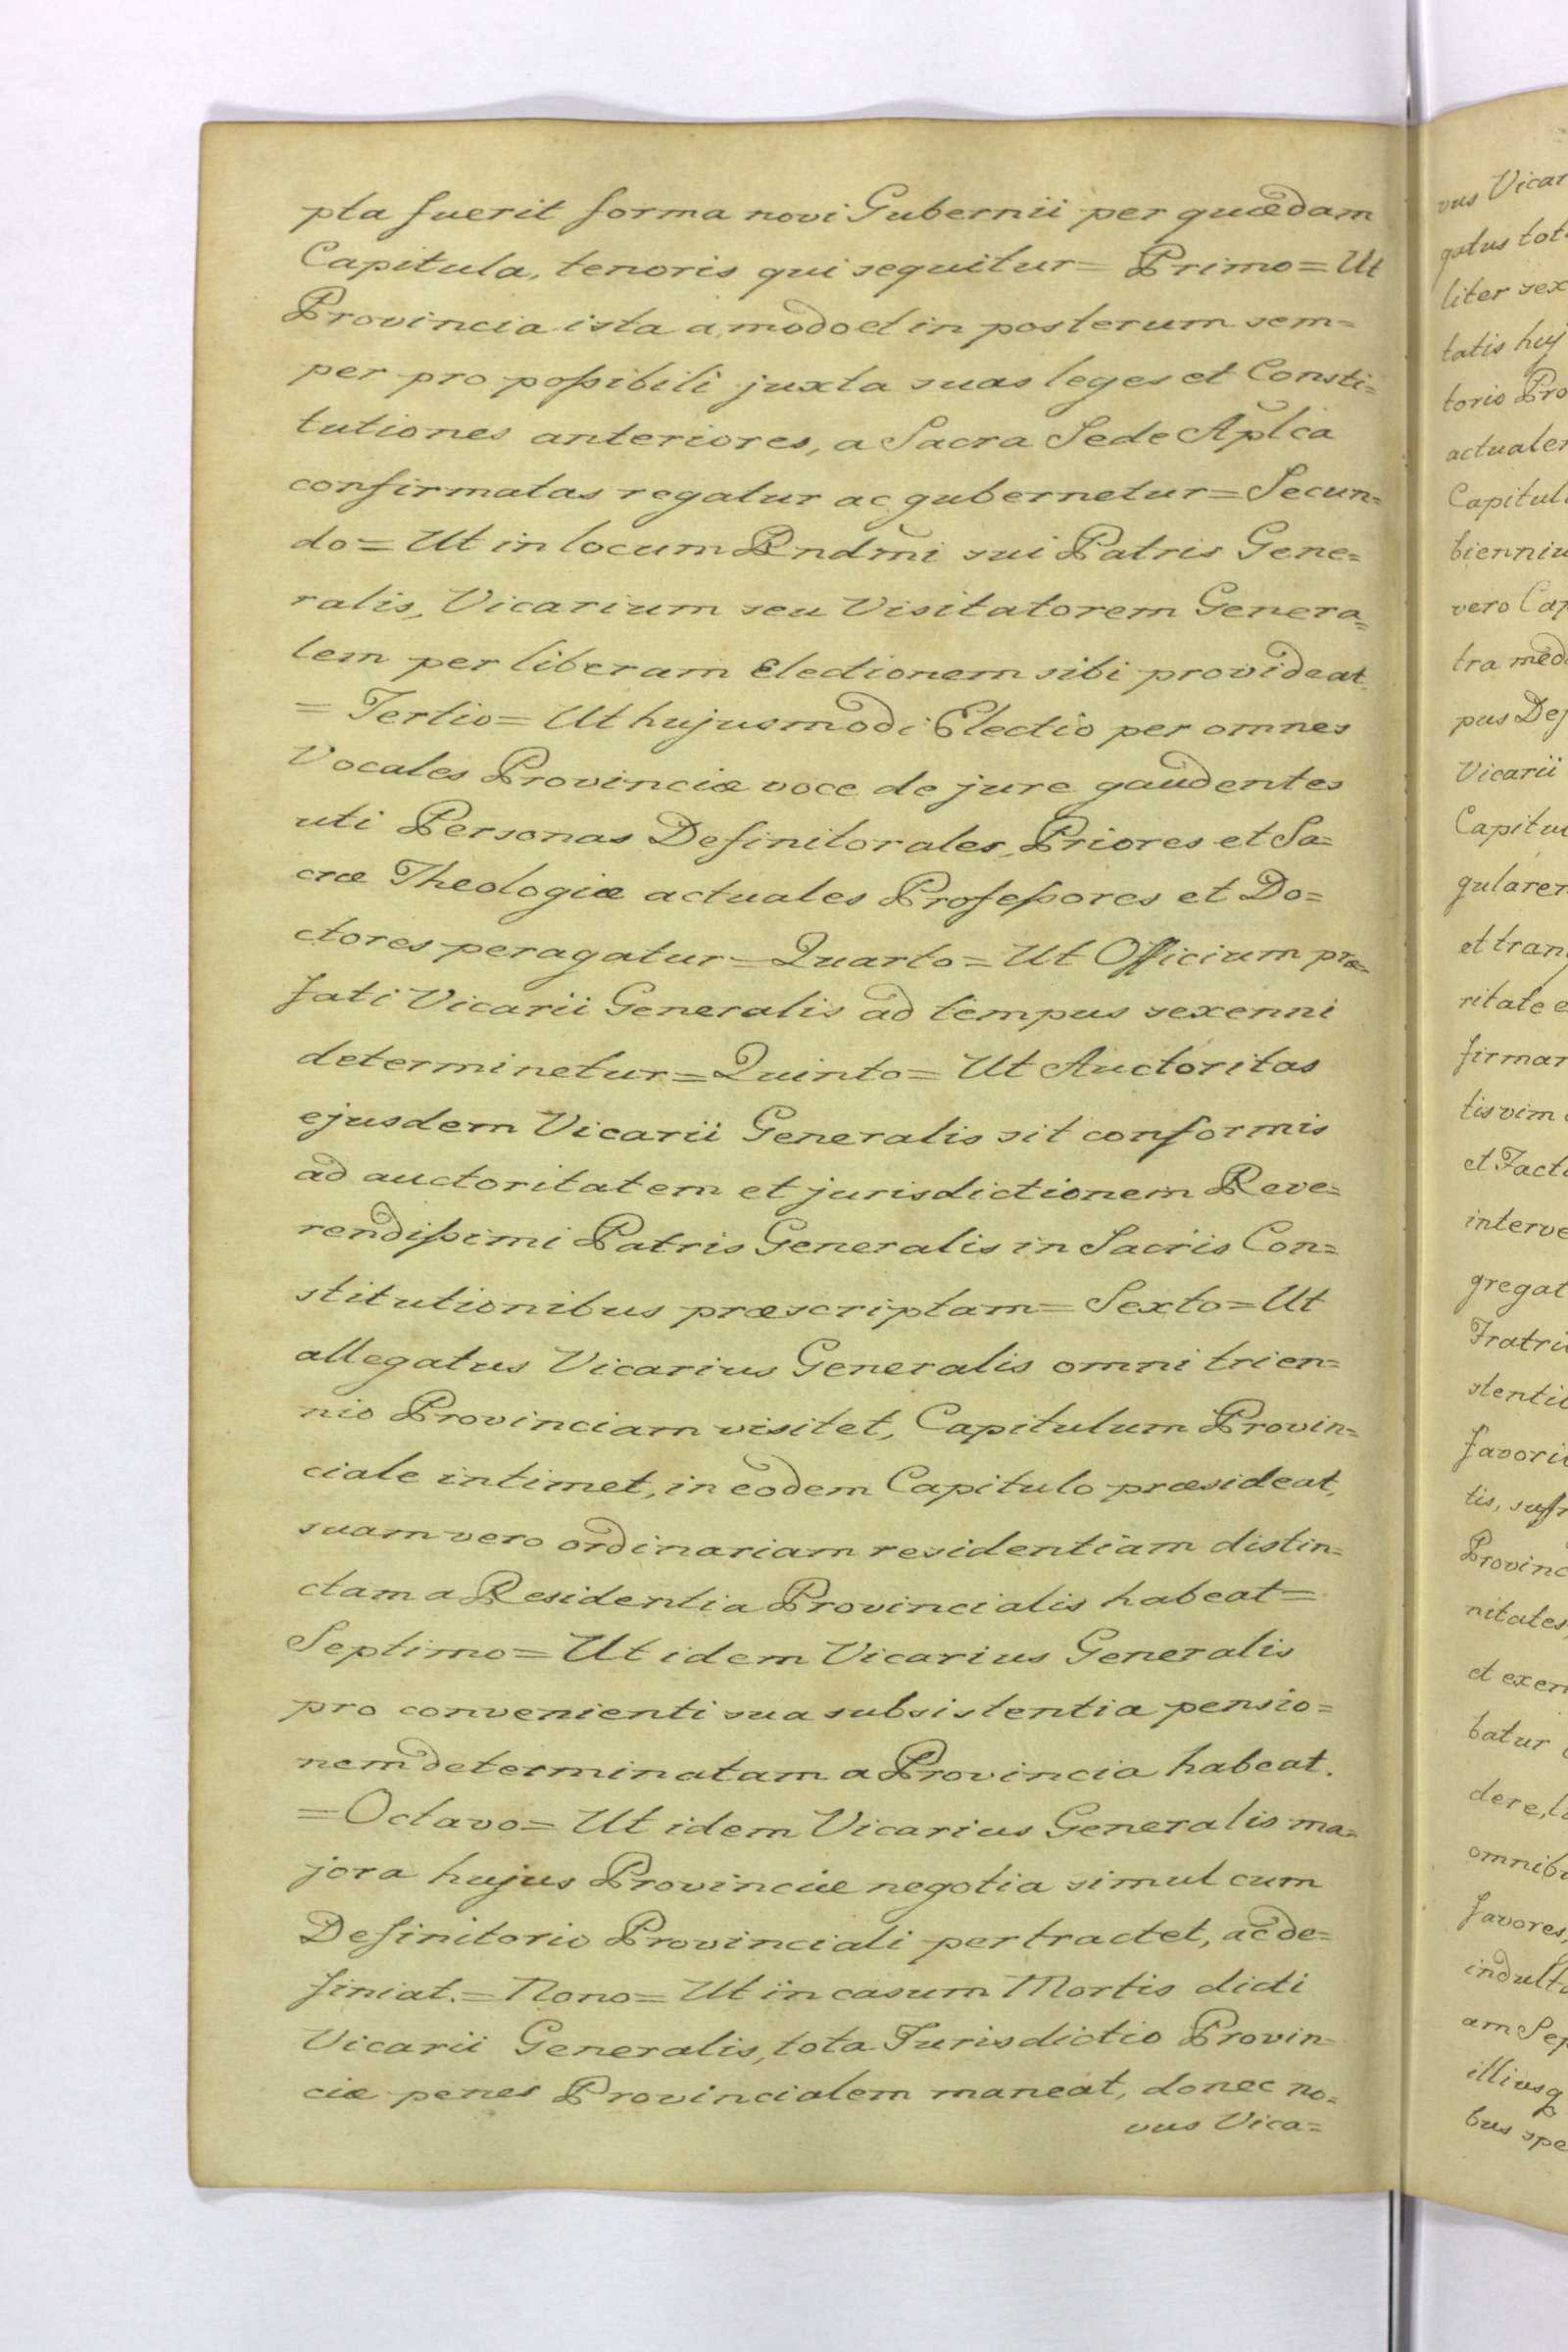 pta fuerit forma novi Gubernii per quædam
Capitula, tenoris qui sequitur= Primo= Ut
Provincia ista a modo et in posterum sem=
per pro poßibili juxta suas leges et Consti=
tutiones anteriores, a Sacra Sede Aplca
confirmatas regatur ac gubernetur= Secun=
do= Ut in locum Rndmi sui Patris Gene=
ralis, Vicarium seu Visitatorem Genera=
lem per liberam Electionem sibi provideat.
= Tertio= Ut hujusmodi Electio per omnes
Vocales Provinciæ voce de jure gaudentes
uti Personas Definitorales, Priores et Sa=
cræ Theologiæ actuales Profeßores et Do=
ctores peragatur= Quarto= Ut Officium præ=
fati Vicarii Generalis ad tempus sexenni
determinetur= Quinto= Ut Auctoritas
ejusdem Vicarii Generalis sit conformis
ad auctoritatem et jurisdictionem Reve=
rendißimi Patris Generalis in Sacris Con=
stitutionibus præscriptam= Sexto= Ut
allegatus Vicarius Generalis omni trien=
nio Provinciam visitet, Capitulum Provin=
ciale intimet, in eodem Capitulo præsideat,
suam vero ordinariam residentiam distin=
ctam a Residentia Provincialis habeat=
Septimo= Ut idem Vicarius Generalis
pro convenienti sua subsistentia pensio=
nem determinatam a Provincia habeat.
= Octavo= Ut idem Vicarius Generalis ma=
jora hujus Provinciæ negotia simul cum
Definitorio Provinciali pertractet, ac de=
finiat.= Nono= Ut in casum Mortis dicti
Vicarii Generalis, tota Jurisdictio Provin=
ciæ penes Provincialem maneat, donec no=
vus Vica=
vus Vicar
gatus tot
liter sex
tatis huj
torio Pro
actuale
Capitul
bienniu
vero Cap
tra med
pus Def
Vicarii
Capitu
gularer
et tran
ritate e
firmar
tis vim
et Fact
interve
gregat
Fratri
stentii
favori
tis, suff
Provinc
nitates,
et exen
batur
dere, l
omnib
favores,
indult
am Sep
illiusq
bus spe